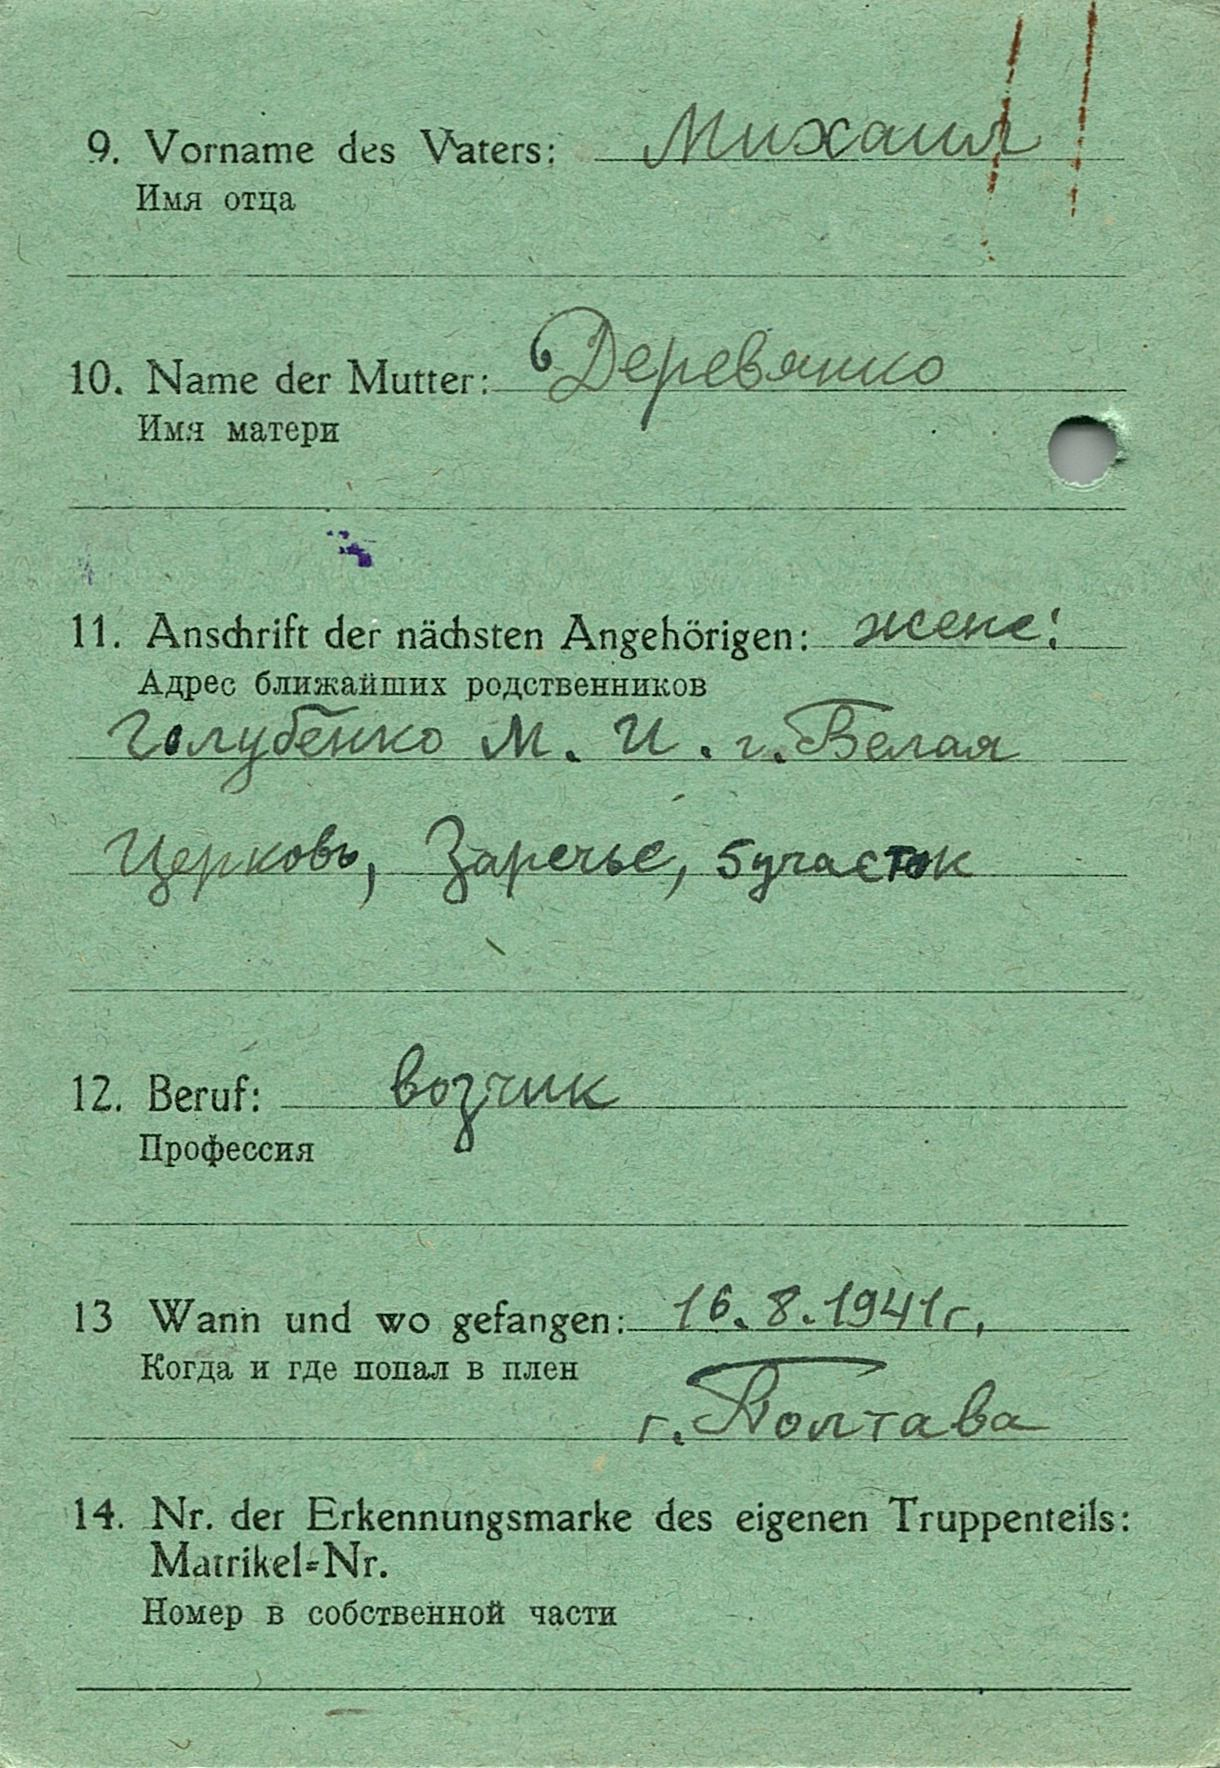 9. Vorname des Vaters: Михаил
Имя отца
10. Name der Mutter: Деревянко
Имя матери
11. Anschrift der nächsten Angehörigen: жене:
Адрес ближайших родственников
Голубенко М. И. г. Белая
Церковь, Заречье, 5 участок
12. Beruf: возчик
Профессия
13 Wann und wo gefangen: 16.8.1941г.
Когда и где попал в плен
г. Полтава
14. Nr. der Erkennungsmarke des eigenen Truppenteils:
Matrikel=Nr.
Номер в собственной части